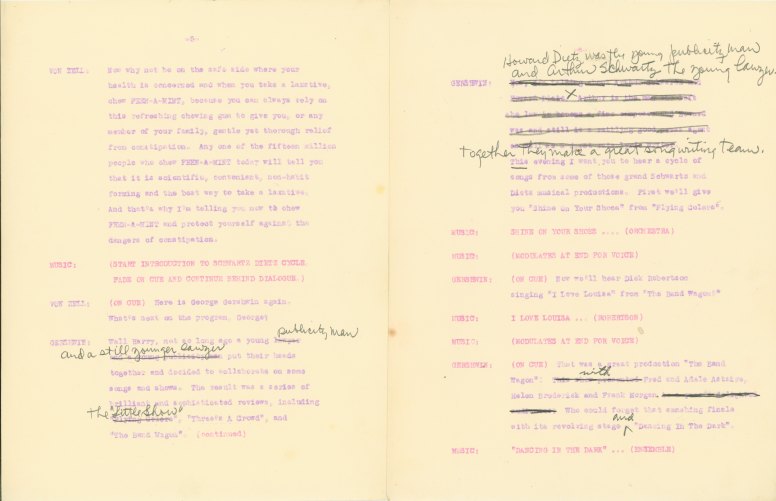 -5-
VON ZELL: Now why not be on the safe side where your
health is concerned and when you take a laxative,
chew FEEN-A-MINT, because you can always rely on
this refreshing chewing gum to give you, or any
member of your family, gentle yet thorough relief
from constipation. Any one of the fifteen million
people who chew FEEN-A-MINT today will tell you
that it is scientific, convenient, non-habit
forming and the best way to take a laxative.
And that's why I'm telling you now to chew
FEEN-A-MINT and protect yourself against the
dangers of constipation.
MUSIC: (START INTRODUCTION TO SCHWARTZ DIETZ CYCLE.
FADE ON CUE AND CONTINUE BEHIND DIALOGUE.)
VON ZELL: (ON CUE) Here is George Gershwin again.
What's next on the program, George?
publicity man
GERSHWIN: Well Harry, not so long ago a young
and a still younger lawyer
put their heads
together and decided to collaborate on some
songs and shows. The result was a series of
brilliant and sophisticated reviews, including
the "Little Show"
"Three's A Crowd", and
"The Band Wagon". (continued)
Howard Dietz was the young publicity man
and Arthur Schwartz the young lawyer.
GERSHWIN:
together they make a great songwriting team.
This evening I want you to hear a cycle of
songs from some of those grand Schwartz and
Dietz musical productions. First we'll give
you "Shine On Your Shoes" from "Flying Colors".
MUSIC: SHINE ON YOUR SHOES .... (ORCHESTRA)
MUSIC: (MODULATES AT END FOR VOICE)
GERSHWIN: (ON CUE) Now we'll hear Dick Robertson
singing "I Love Louisa" from "The Band Wagon"
MUSIC: I LOVE LOUISA ... (ROBERTSON)
MUSIC: (MODULATES AT END FOR VOICE)
GERSHWIN: (ON CUE) That was a great production "The Band
with
Wagon" Fred and Adele Astaire,
Helen Broderick and Frank Morgan.
Who could forget that smashing finale
and
with its revolving stage "Dancing In The Dark".
MUSIC: "DANCING IN THE DARK" ... (ENSEMBLE)